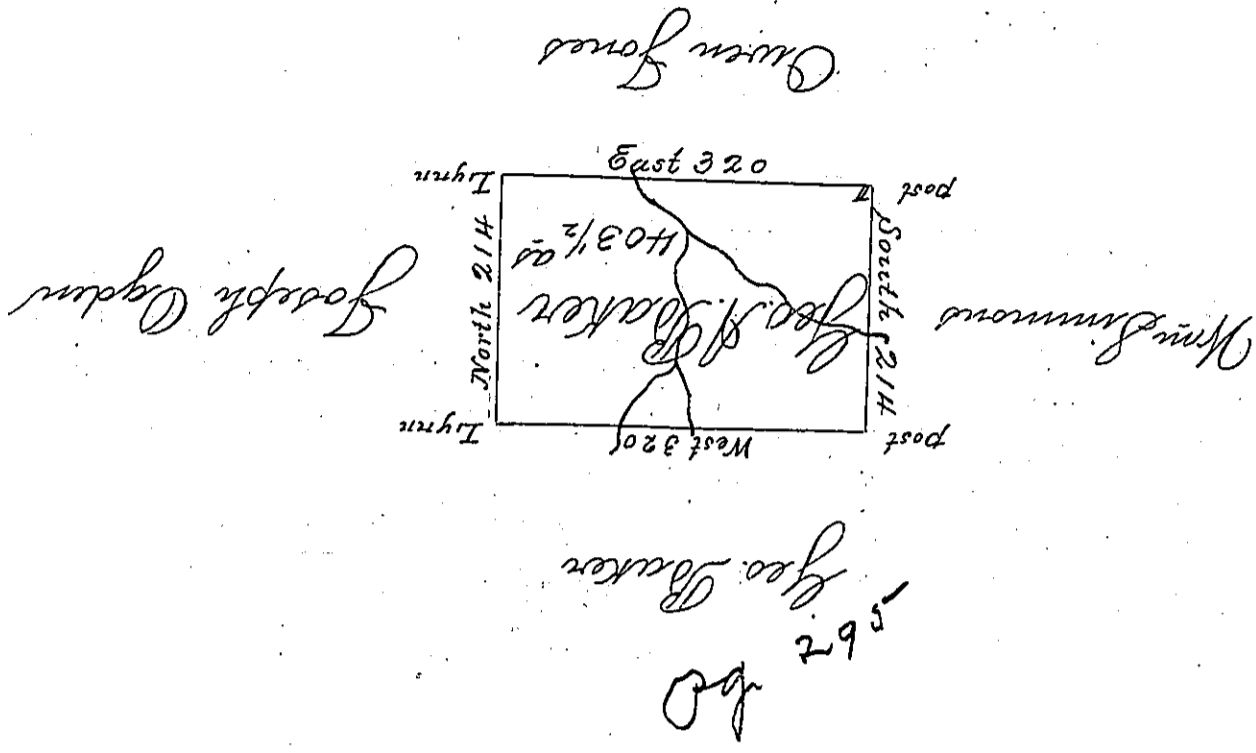 pg 295
Geo. Baker
post West 320 Lynn
Wm Simmons
South 214
Geo. A. Baker
403 1/2 as
North 214
Joseph Ogden
post East 320 Lynn
Owen Jones